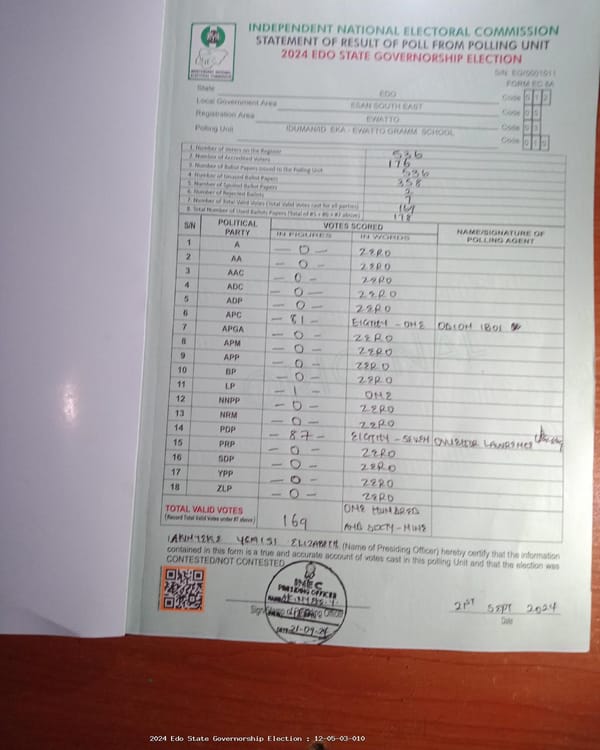 INDEPENDENT NATIONAL ELECTORAL COMMISSION
STATEMENT OF RESULT OF POLL FROM POLLING UNIT
2024 EDO STATE GOVERNORSHIP ELECTION
FORM EC 8A
State EDO Code 0 1 2
Local Government Area ESAN SOUTH EAST Code 0 5
Registration Area EWATTO Code 0 3
Polling Unit IDUMANAD EKA - EWATTO GRAMM SCHOOL Code 0 1 0
1. Number of Voters on the Register 536
2. Number of Accredited Voters 176
3. Number of Ballot Papers Issued to the Polling Unit 536
4. Number of Unused Ballot Papers 358
5. Number of Spoiled Ballot Papers 2
6. Number of Rejected Ballots 7
7. Number of Total Valid Votes (Total Valid Votes cast for all parties) 169
8. Total Number of Used Ballot Papers (Total of #5 + #6 + #7 above) 178
S/N POLITICAL PARTY VOTES SCORED NAME/SIGNATURE OF POLLING AGENT
IN FIGURES IN WORDS
1 A - 0 - ZERO
2 AA - 0 - ZERO
3 AAC - 0 - ZERO
4 ADC - 0 - ZERO
5 ADP - 0 - ZERO
6 APC - 81 - EIGTITY - ONE ODION
7 APGA - 0 - ZERO
8 APM - 0 - ZERO
9 APP - 0 - ZERO
10 BP - 0 - ZERO
11 LP - 1 - ONE
12 NNPP - 0 - ZERO
13 NRM - 0 - ZERO
14 PDP - 87 - EIGTITY - SEVEN
15 PRP - 0 - ZERO
16 SDP - 0 - ZERO
17 YPP - 0 - ZERO
18 ZLP - 0 - ZERO
TOTAL VALID VOTES
(Record Total Valid Votes under #7 above)
169
ONE HUNDRED
AND SIXTY-NINE
YEMISI ELIZABETH (Name of Presiding Officer) hereby certify that the information
contained in this form is a true and accurate account of votes cast in this polling Unit and that the election was
CONTESTED/NOT CONTESTED
INEC
PRESIDING OFFICER
DATE 21-09-24
21ST SEPT 2024
Date
2024 Edo State Governorship Election : 12-05-03-010